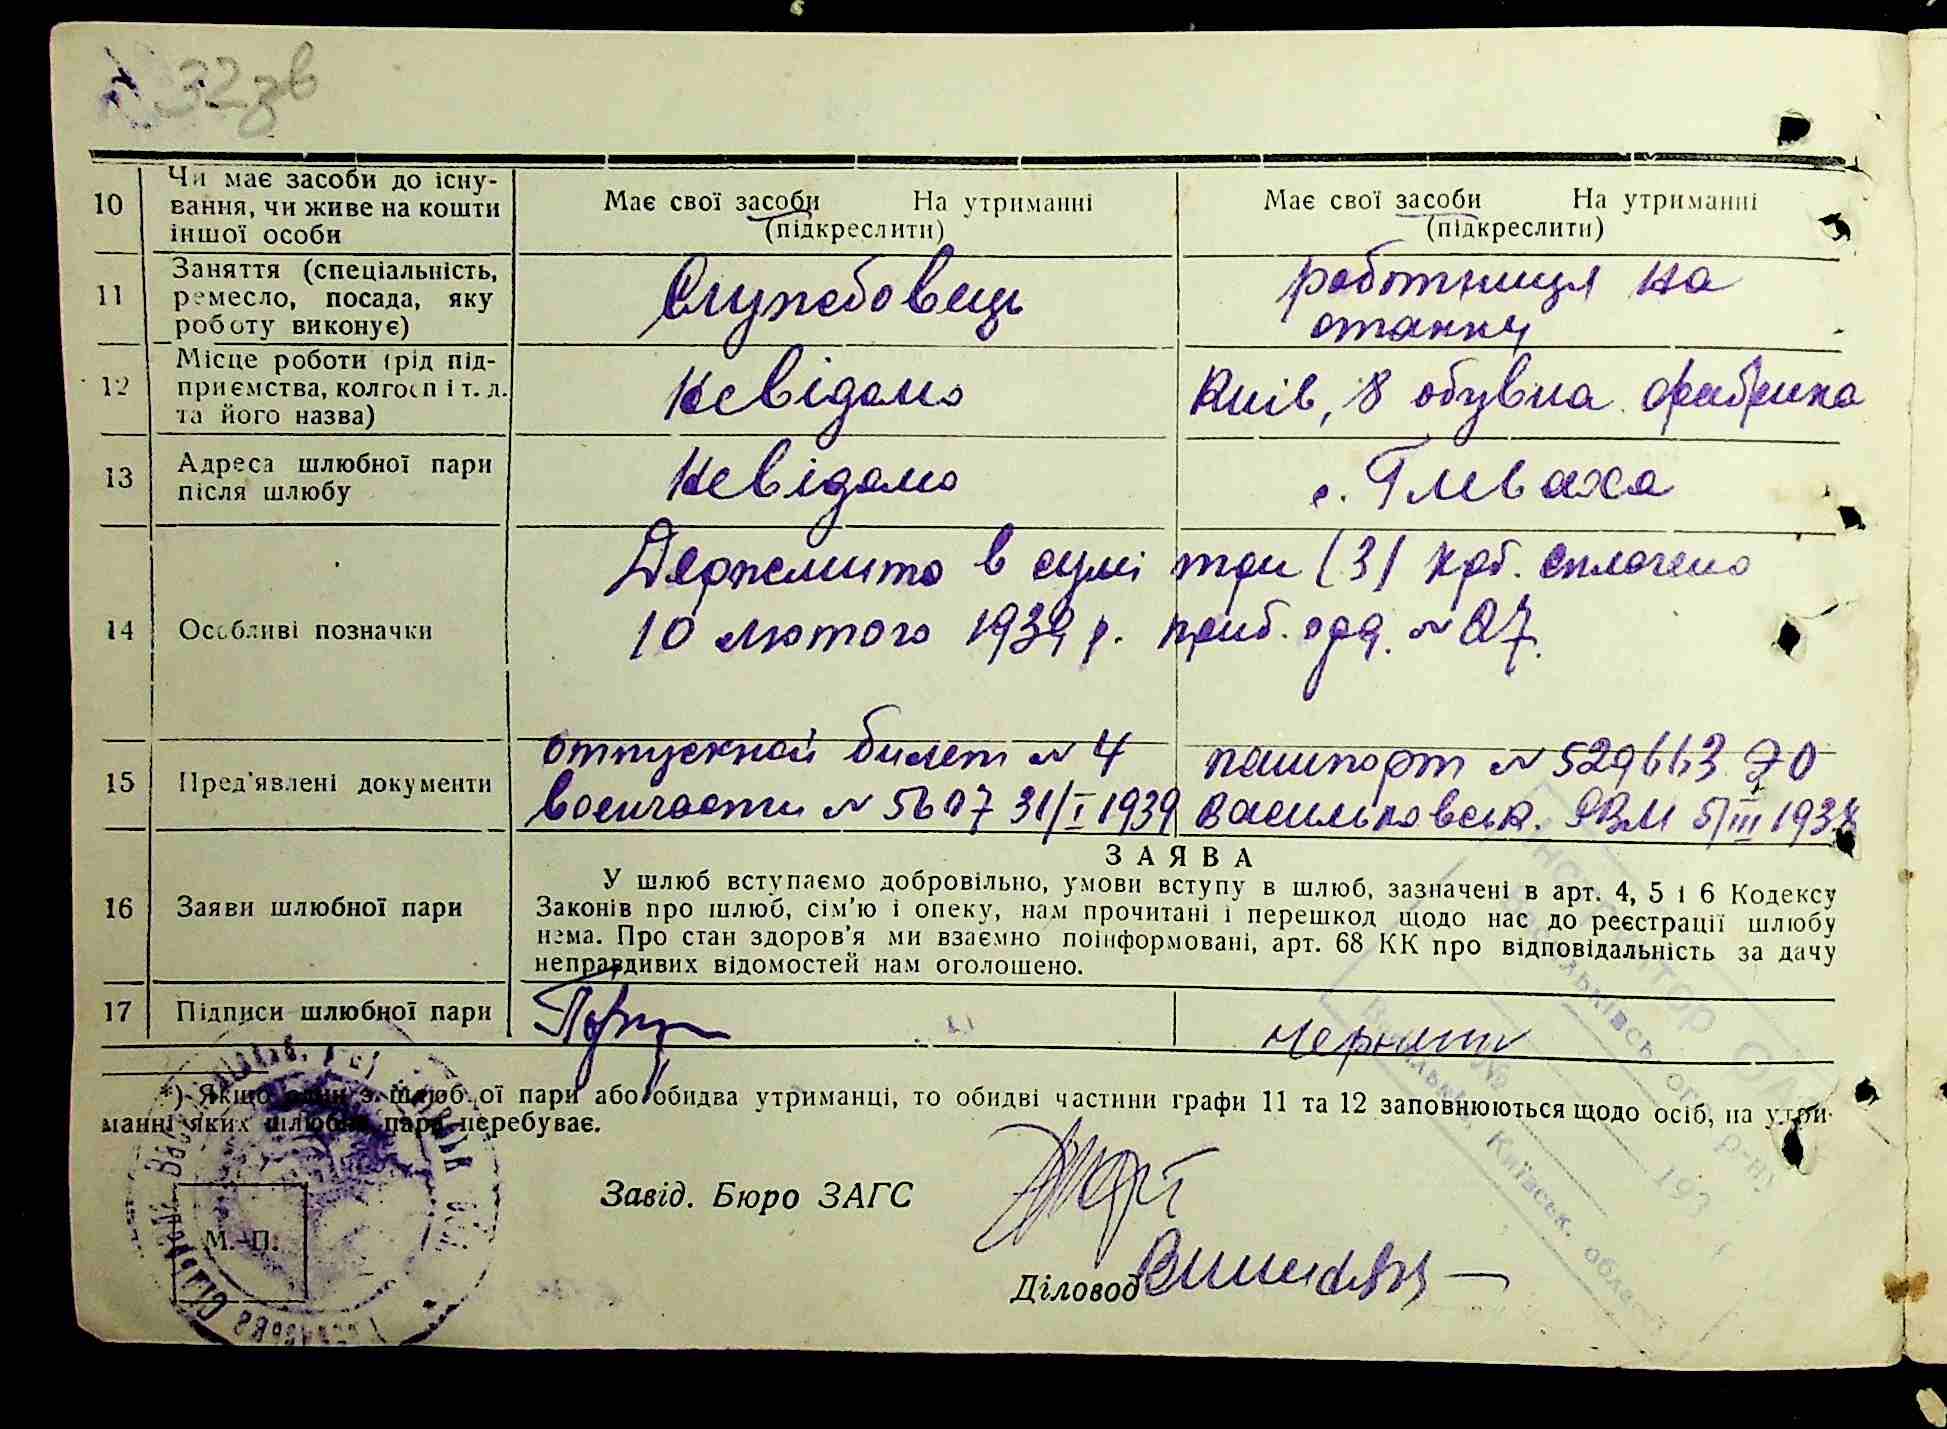 32зв
10
Чи має засоби до існу-
вання, чи живе на кошти
іншої особи
Має свої засоби На утриманні
(підкреслити)
Має свої засоби На утриманні
(підкреслити)
11
Заняття (спеціальність,
ремесло, посада, яку
роботу виконує)
Службовець
роботниця на
станку
12
Місце роботи (рід під-
приємства, колгосп і т. д.
та його назва)
невідомо
Київ, 8 обувна фабрика
13
Адреса шлюбної пари
після шлюбу
невідомо
с. Глеваха
14
Особливі позначки
Держмито в сумі три (3) крб. сплачено
10 лютого 1939 р. приб. орд. №27.
15
Пред'явлені документи
отпускной билет № 4
воинчасти № 5607 31/I 1939
пашпорт № 529663 ЭО
Васильковськ. РВМ 5/III 193
16
Заяви шлюбної пари
ЗАЯВА
У шлюб вступаємо добровільно, умови вступу в шлюб, зазначені в арт. 4, 5 і 6 Кодексу
Законів про шлюб, сім'ю і опеку, нам прочитані і перешкод щодо нас до реєстрації шлюбу
нема. Про стан здоров'я ми взаємно поінформовані, арт. 68 КК про відповідальність за дачу
неправдивих відомостей нам оголошено.
17
Підписи шлюбної пари
*) Якщо один з шлюбної пари або обидва утриманці, то обидві частини графи 11 та 12 заповнюються щодо осіб, на утри-
манні яких шлюбна пара перебуває.
Завід. Бюро ЗАГС
М. П.
Діловод